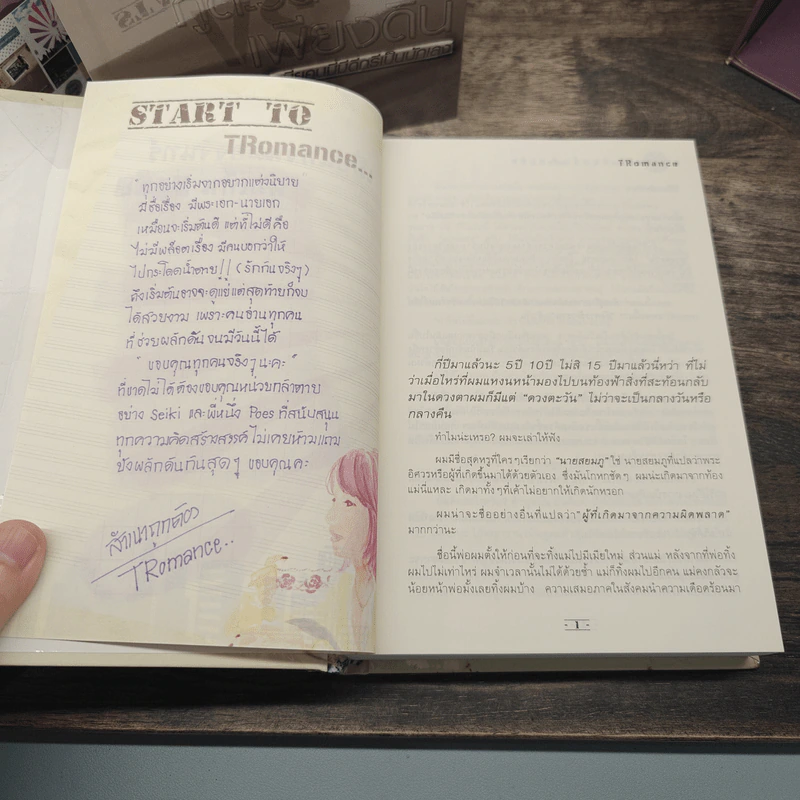 START TO
TRomance...
"ทุกอย่างเริ่มจากอยากแต่งนิยาย
มีชื่อเรื่อง มีพระเอก-นายเอก
เหมือนจะเริ่มต้นดี แต่ที่ไม่ดีคือ
ไม่มีพล็อตเรื่อง มีคนบอกว่าให้
ไปกระโดดน้ำตาย!! (รักกันจริงๆ)
ถึงเริ่มต้นอาจจะดูแย่แต่สุดท้ายก็จบ
ได้สวยงาม เพราะคนอ่านทุกคน
ที่ช่วยผลักดันจนมีวันนี้ได้
"ขอบคุณทุกคนจริงๆ นะคะ"
ที่ขาดไม่ได้ต้องขอบคุณหน่วยกล้าตาย
อย่าง Seiki และพี่หนึ่ง Poes ที่สนับสนุน
ทุกความคิดสร้างสรรค์ ไม่เคยห้ามแถม
ยังผลักดันกันสุดๆ ขอบคุณค่ะ
สำเนาถูกต้อง
TRomance..
TRomance
กี่ปีมาแล้วนะ 5ปี 10ปี ไม่สิ 15 ปีมาแล้วนี่หว่า ที่ไม่
ว่าเมื่อไหร่ที่ผมแหงนหน้ามองไปบนท้องฟ้าสิ่งที่สะท้อนกลับ
มาในดวงตาผมก็มีแต่ "ดวงตะวัน" ไม่ว่าจะเป็นกลางวันหรือ
กลางคืน
ทำไมน่ะเหรอ? ผมจะเล่าให้ฟัง
ผมมีชื่อสุดหรูที่ใครๆเรียกว่า "นายสยมภู" ใช่ นายสยมภูที่แปลว่าพระ
อิศวรหรือผู้ที่เกิดขึ้นมาได้ด้วยตัวเอง ซึ่งมันโกหกชัดๆ ผมน่ะเกิดมาจากท้อง
แม่นี่แหละ เกิดมาทั้งๆที่เค้าไม่อยากให้เกิดนักหรอก
ผมน่าจะชื่ออย่างอื่นที่แปลว่า"ผู้ที่เกิดมาจากความผิดพลาด"
มากกว่านะ
ชื่อนี้พ่อผมตั้งให้ก่อนที่จะทิ้งแม่ไปมีเมียใหม่ ส่วนแม่ หลังจากที่พ่อทิ้ง
ผมไปไม่เท่าไหร่ ผมจำเวลานั้นไม่ได้ด้วยซ้ำ แม่ก็ทิ้งผมไปอีกคน แม่คงกลัวจะ
น้อยหน้าพ่อมั้งเลยทิ้งผมบ้าง ความเสมอภาคในสังคมนำความเดือดร้อนมา
1